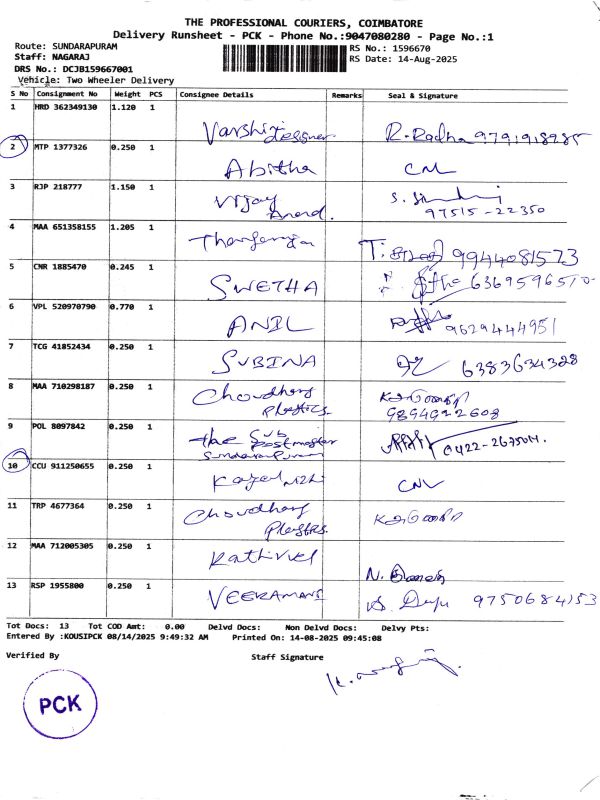 THE PROFESSIONAL COURIERS, COIMBATORE
Delivery Runsheet - PCK - Phone No.:9047080280 - Page No.:1
Route: SUNDARAPURAM
RS No.: 1596670
Staff: NAGARAJ
RS Date: 14-Aug-2025
DRS No.: DCJB159667001
Vehicle: Two Wheeler Delivery
S No Consignment No Weight PCS Consignee Details Remarks Seal & Signature
1 HRD 362349130 1.120 1
Varshi R. Radha 9791918985
2 MTP 1377326 0.250 1
Abitha CNL
3 RJP 218777 1.150 1
Vijay Anand. 97515-22350
4 MAA 651358155 1.205 1
9944081573
5 CNR 1885470 0.245 1
SWETHA 6369596510
6 VPL 520970790 0.770 1
ANIL 9629444951
7 TCG 41852434 0.250 1
SUBINA 6383634328
8 MAA 710298187 0.250 1
Choudhary Plastics 9894922608
9 POL 8097842 0.250 1
the Sub postmaster Sundarapuram
10 CCU 911250655 0.250 1
CNL
11 TRP 4677364 0.250 1
Choudhary
12 MAA 712005305 0.250 1
Kathirvel
13 RSP 1955800 0.250 1
VEERAMANI 9750684153
Tot Docs: 13 Tot COD Amt: 0.00 Delvd Docs: Non Delvd Docs: Delvy Pts:
Entered By :KOUSIPCK 08/14/2025 9:49:32 AM Printed On: 14-08-2025 09:45:08
Verified By Staff Signature
PCK